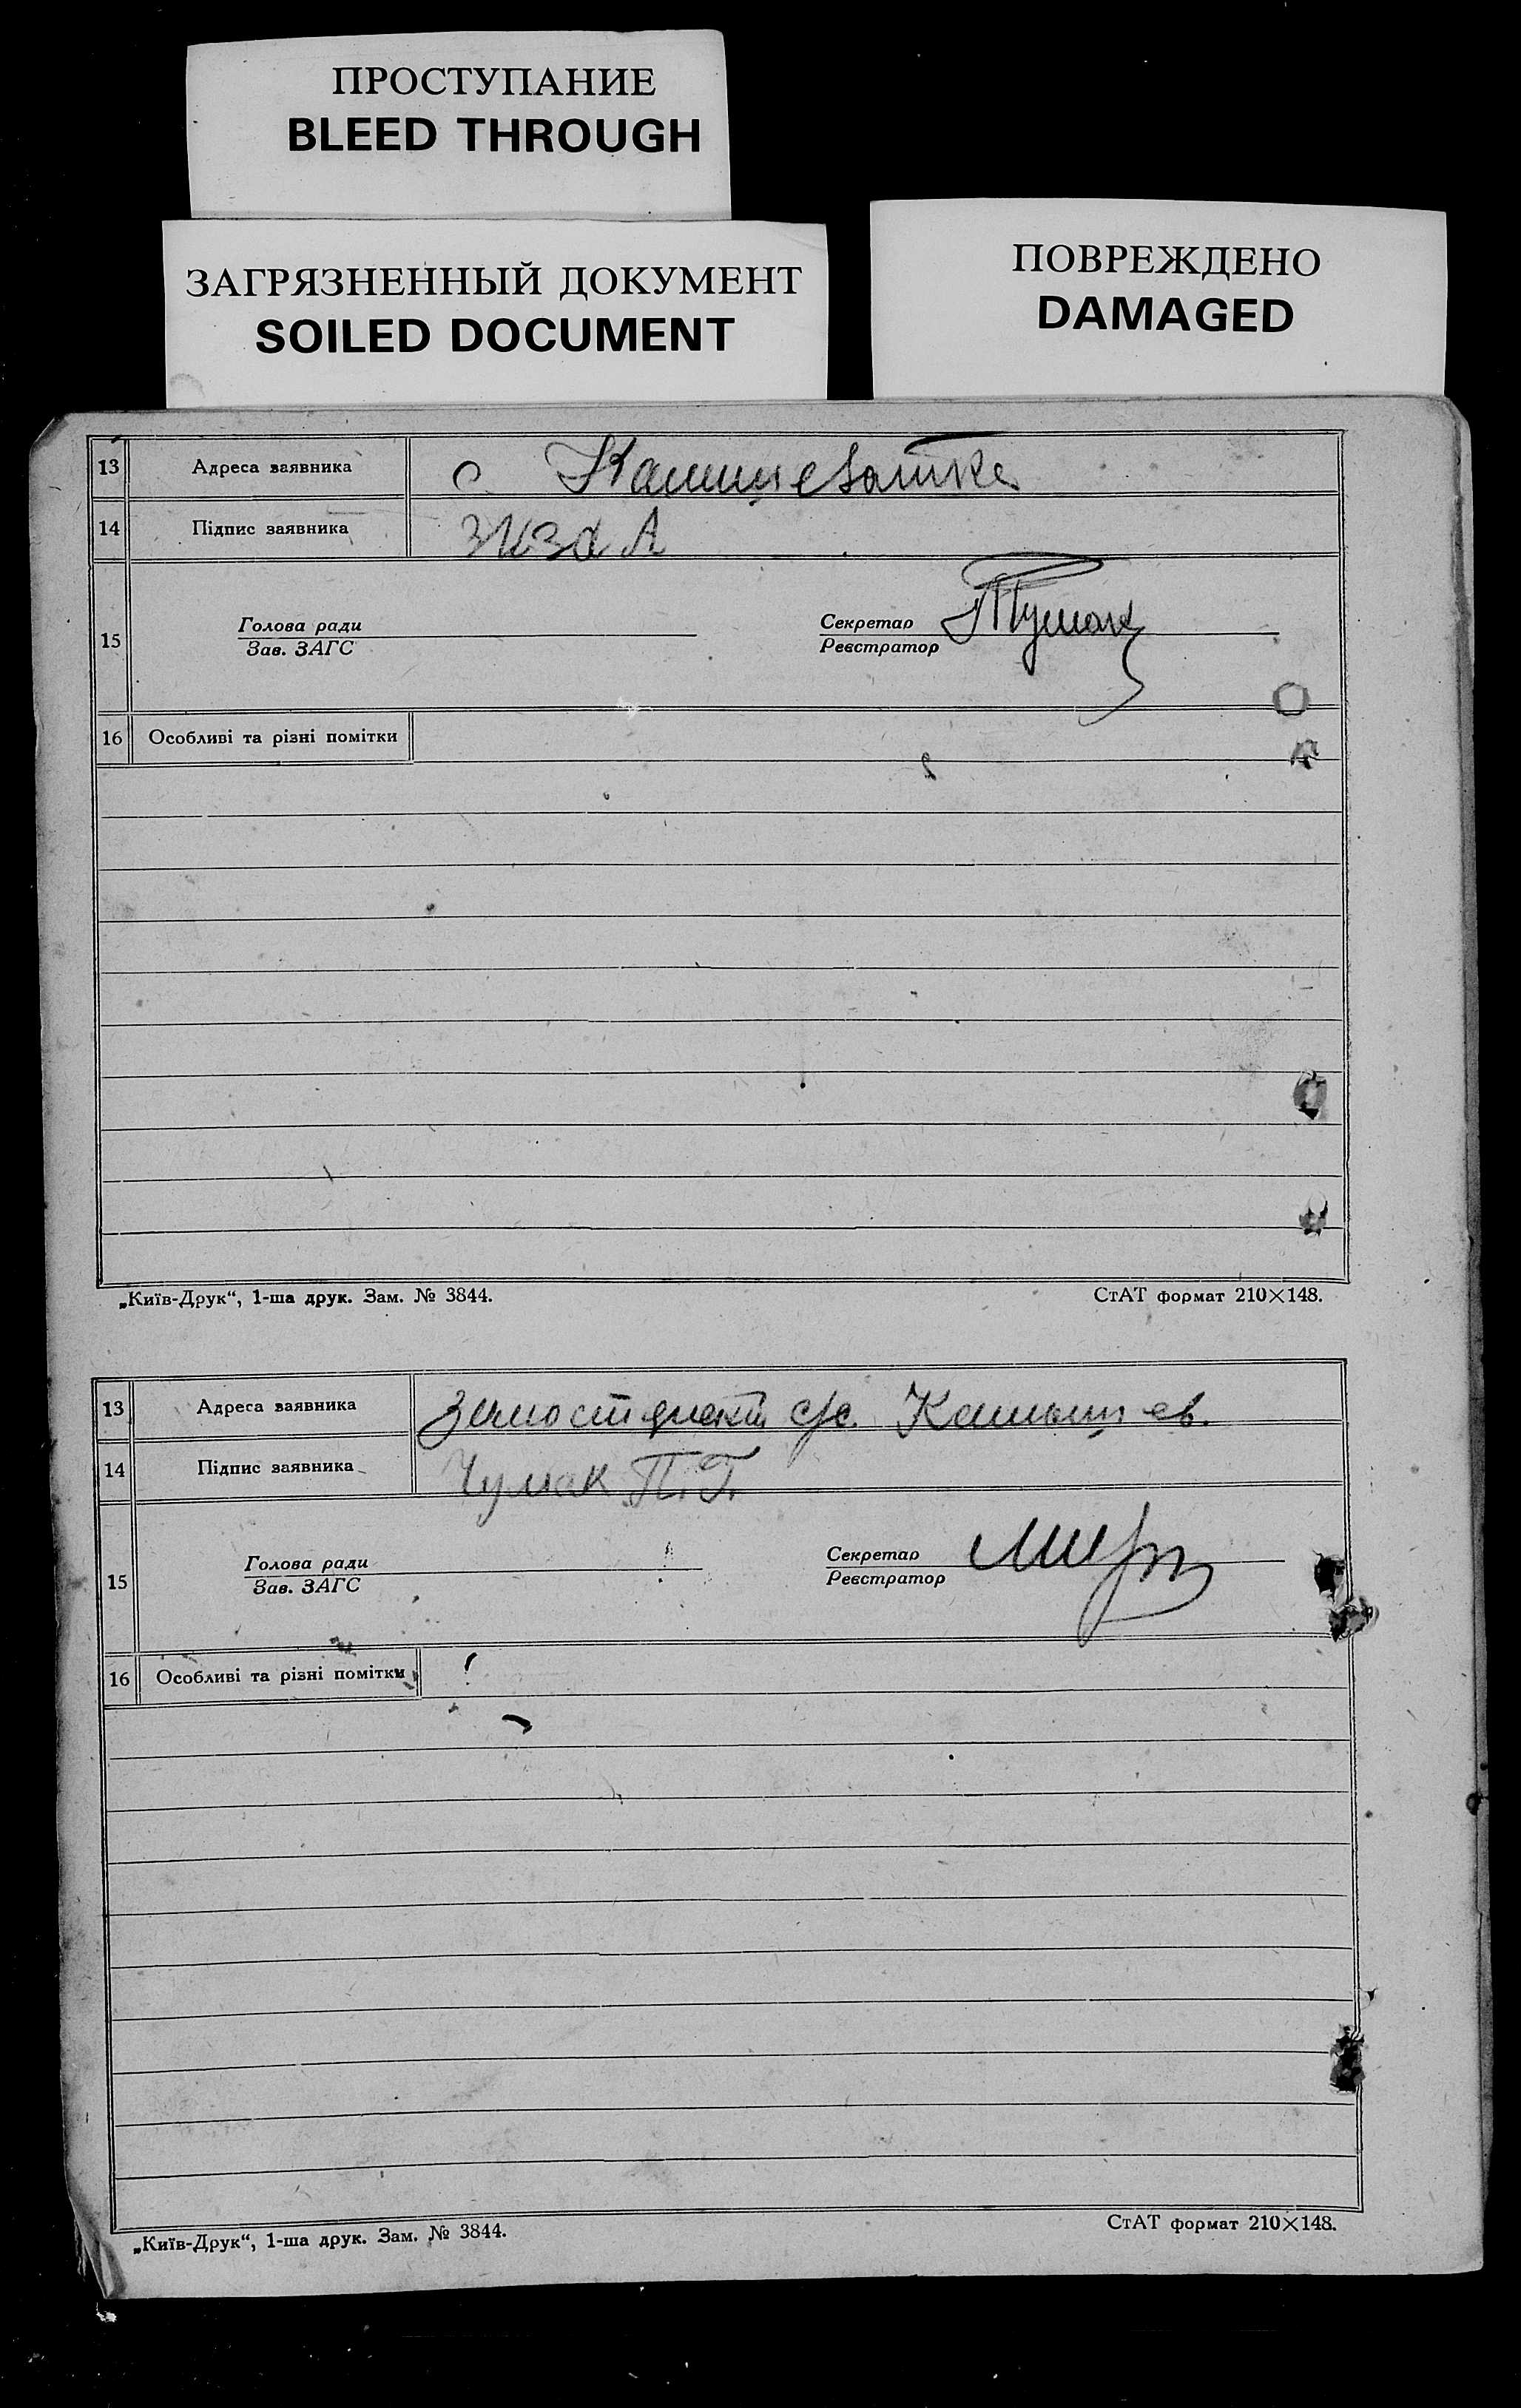 ПРОСТУПАНИЕ
BLEED THROUGH
ЗАГРЯЗНЕННЫЙ ДОКУМЕНТ
SOILED DOCUMENT
ПОВРЕЖДЕНО
DAMAGED
13 Адреса заявника с.
14 Підпис заявника
15 Голова ради Секретар
Зав. ЗАГС Реєстратор
16 Особливі та різні помітки
„Київ-Друк“, 1-ша друк. Зам. № 3844. СтАТ формат 210×148.
13 Адреса заявника
14 Підпис заявника Чумак П.Г.
15 Голова ради Секретар
Зав. ЗАГС Реєстратор
16 Особливі та різні помітки
„Київ-Друк“, 1-ша друк. Зам. № 3844. СтАТ формат 210×148.